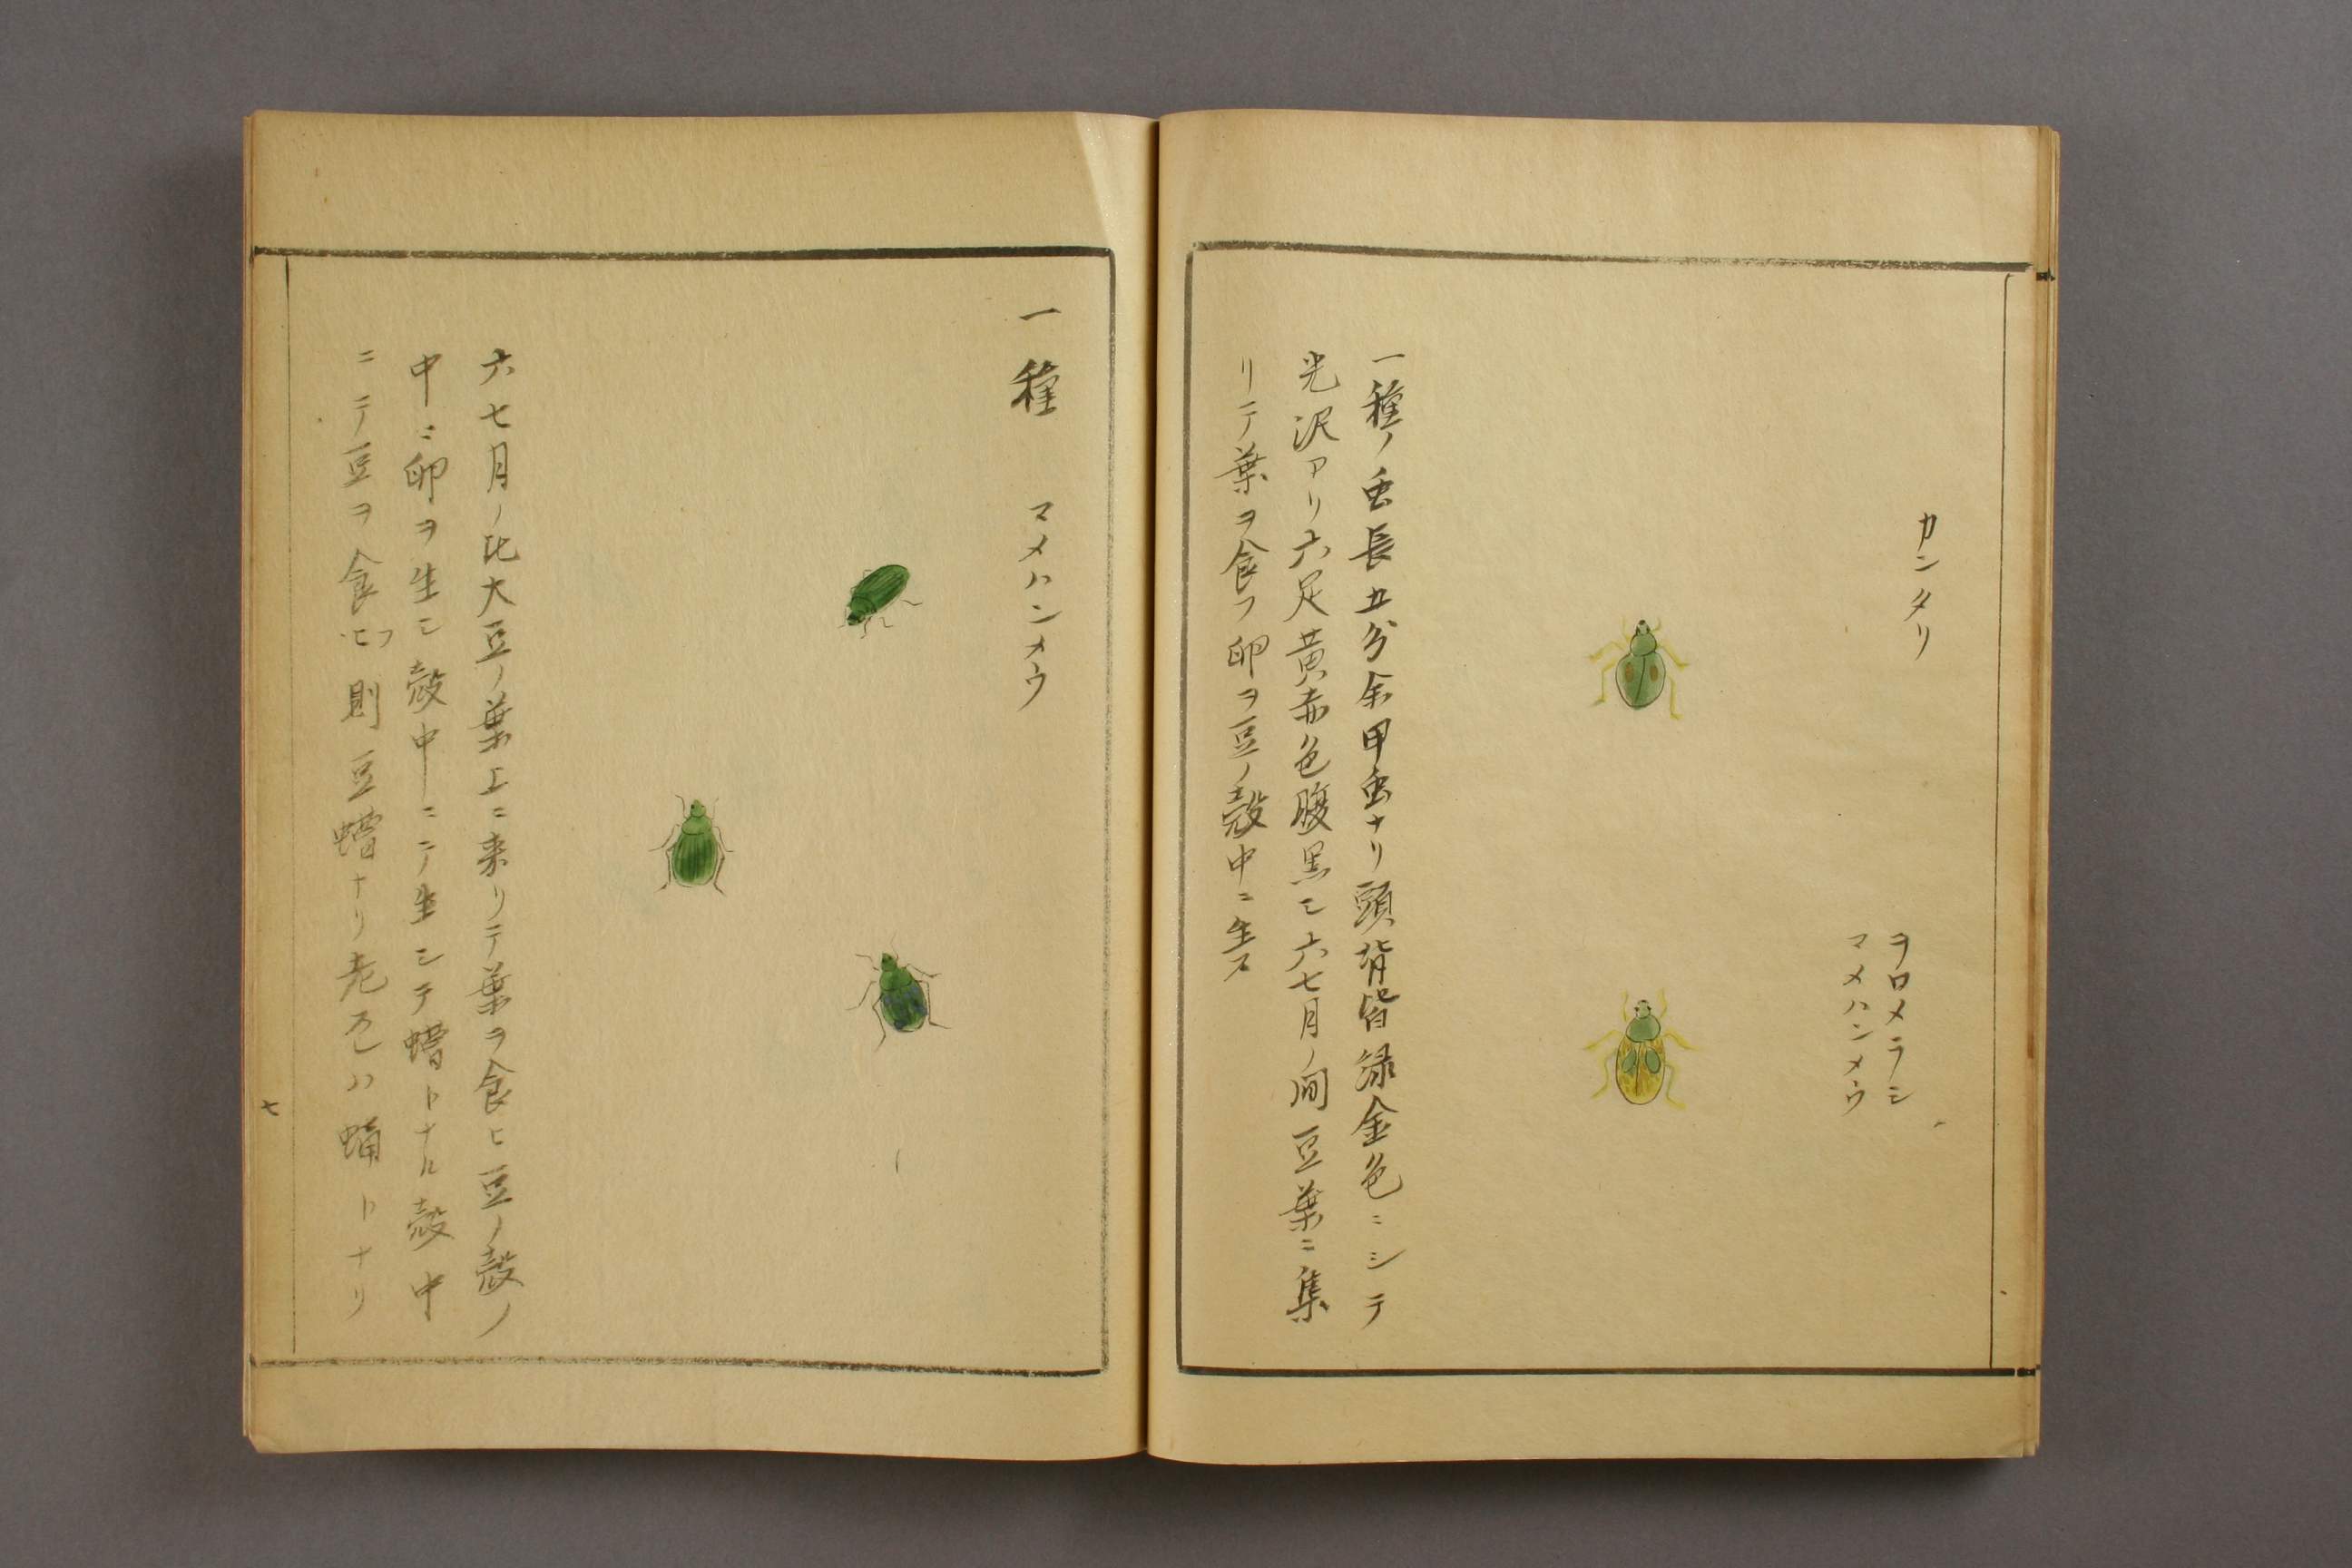 カンタリ
ヲロメラシ
マメハンメウ
一種ノ虫長五分余甲虫ナリ頭背皆緑金色ニシテ
光沢アリ六足黄赤色腹黒シ六七月ノ間豆葉ニ集
リテ葉ヲ食フ卵ヲ豆ノ殻中ニ生ス
一種 マメハンメウ
六七月ノ比大豆ノ葉上ニ来リテ葉ヲ食ヒ豆ノ殻ノ
中ニ卵ヲ生シ殻中ニテ生シテ螬トナル殻中
ニテ豆ヲ食フ 則豆螬ナリ老 ハ蛹トナリ
七